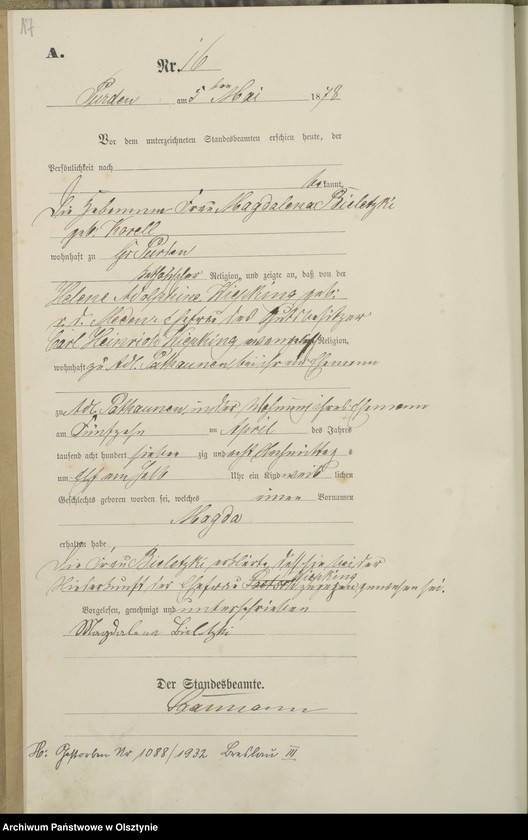 17
A.
Nr. 16
Purden am 5 ten Mai 1878
Vor dem unterzeichneten Standesbeamten erschien heute, der
Persönlichkeit nach
bekannt,
Die Hebamme Frau Magdalena Bieletzki
geb. Korell
wohnhaft zu Gr Purden
katholischer Religion, und zeigte an, daß von der
Helene Adolphine Kiepking geb.
Ehefrau des Gutsbesitzer
Carl Heinrich Kiepking evangel. Religion,
wohnhaft zu Adl. Patkaunen bei ihrem Ehemann
zu Adl. Patkaunen, in der Wohnung ihres Ehemann
am Fünfzehn ten April des Jahres
tausend acht hundert sieben zig und acht Nachmittag s
um Elf ein halb Uhr ein Kind weib lichen
Geschlechts geboren worden sei, welches einen Vornamen
Magda
erhalten habe
Die Frau Bieletzki erklärte, daß sie bei der
Niederkunft der Ehefrau Kiepking zugegen gewesen sei.
Vorgelesen, genehmigt und unterschrieben
Magdalena Bieletzki
Der Standesbeamte.
H: Gestorben Nr 1088/1932 Breslau III
Archiwum Państwowe w Olsztynie